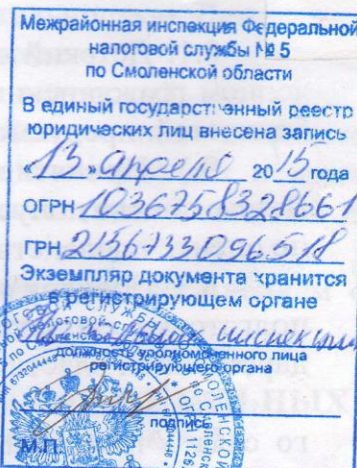 Межрайонная инспекция Федеральной
налоговой службы № 5
по Смоленской области
В единый государственный реестр
юридических лиц внесена запись
«13» апреля 2015 года
ОГРН 1036758328661
ГРН 2156733096518
Экземпляр документа хранится
в регистрирующем органе
инспекции
должность уполномоченного лица
регистрирующего органа
подпись
М.П.